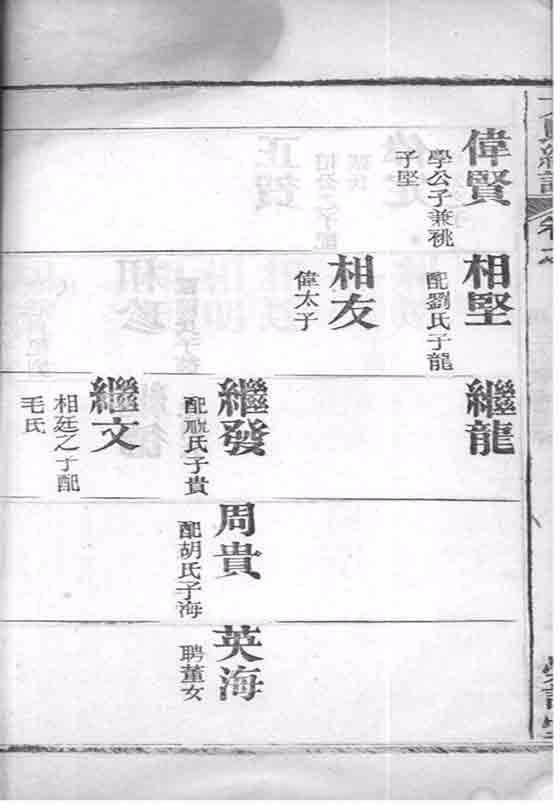 偉賢
學公子兼祧
子堅
相堅
配劉氏子龍
相友
偉太子
繼龍
繼發
配氏子貴
繼文
相廷之子配
毛氏
周貴
配胡氏子海
英海
聘董女